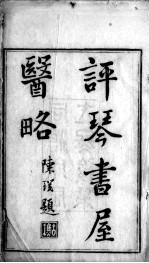 評琴書屋
醫略
陳璞題